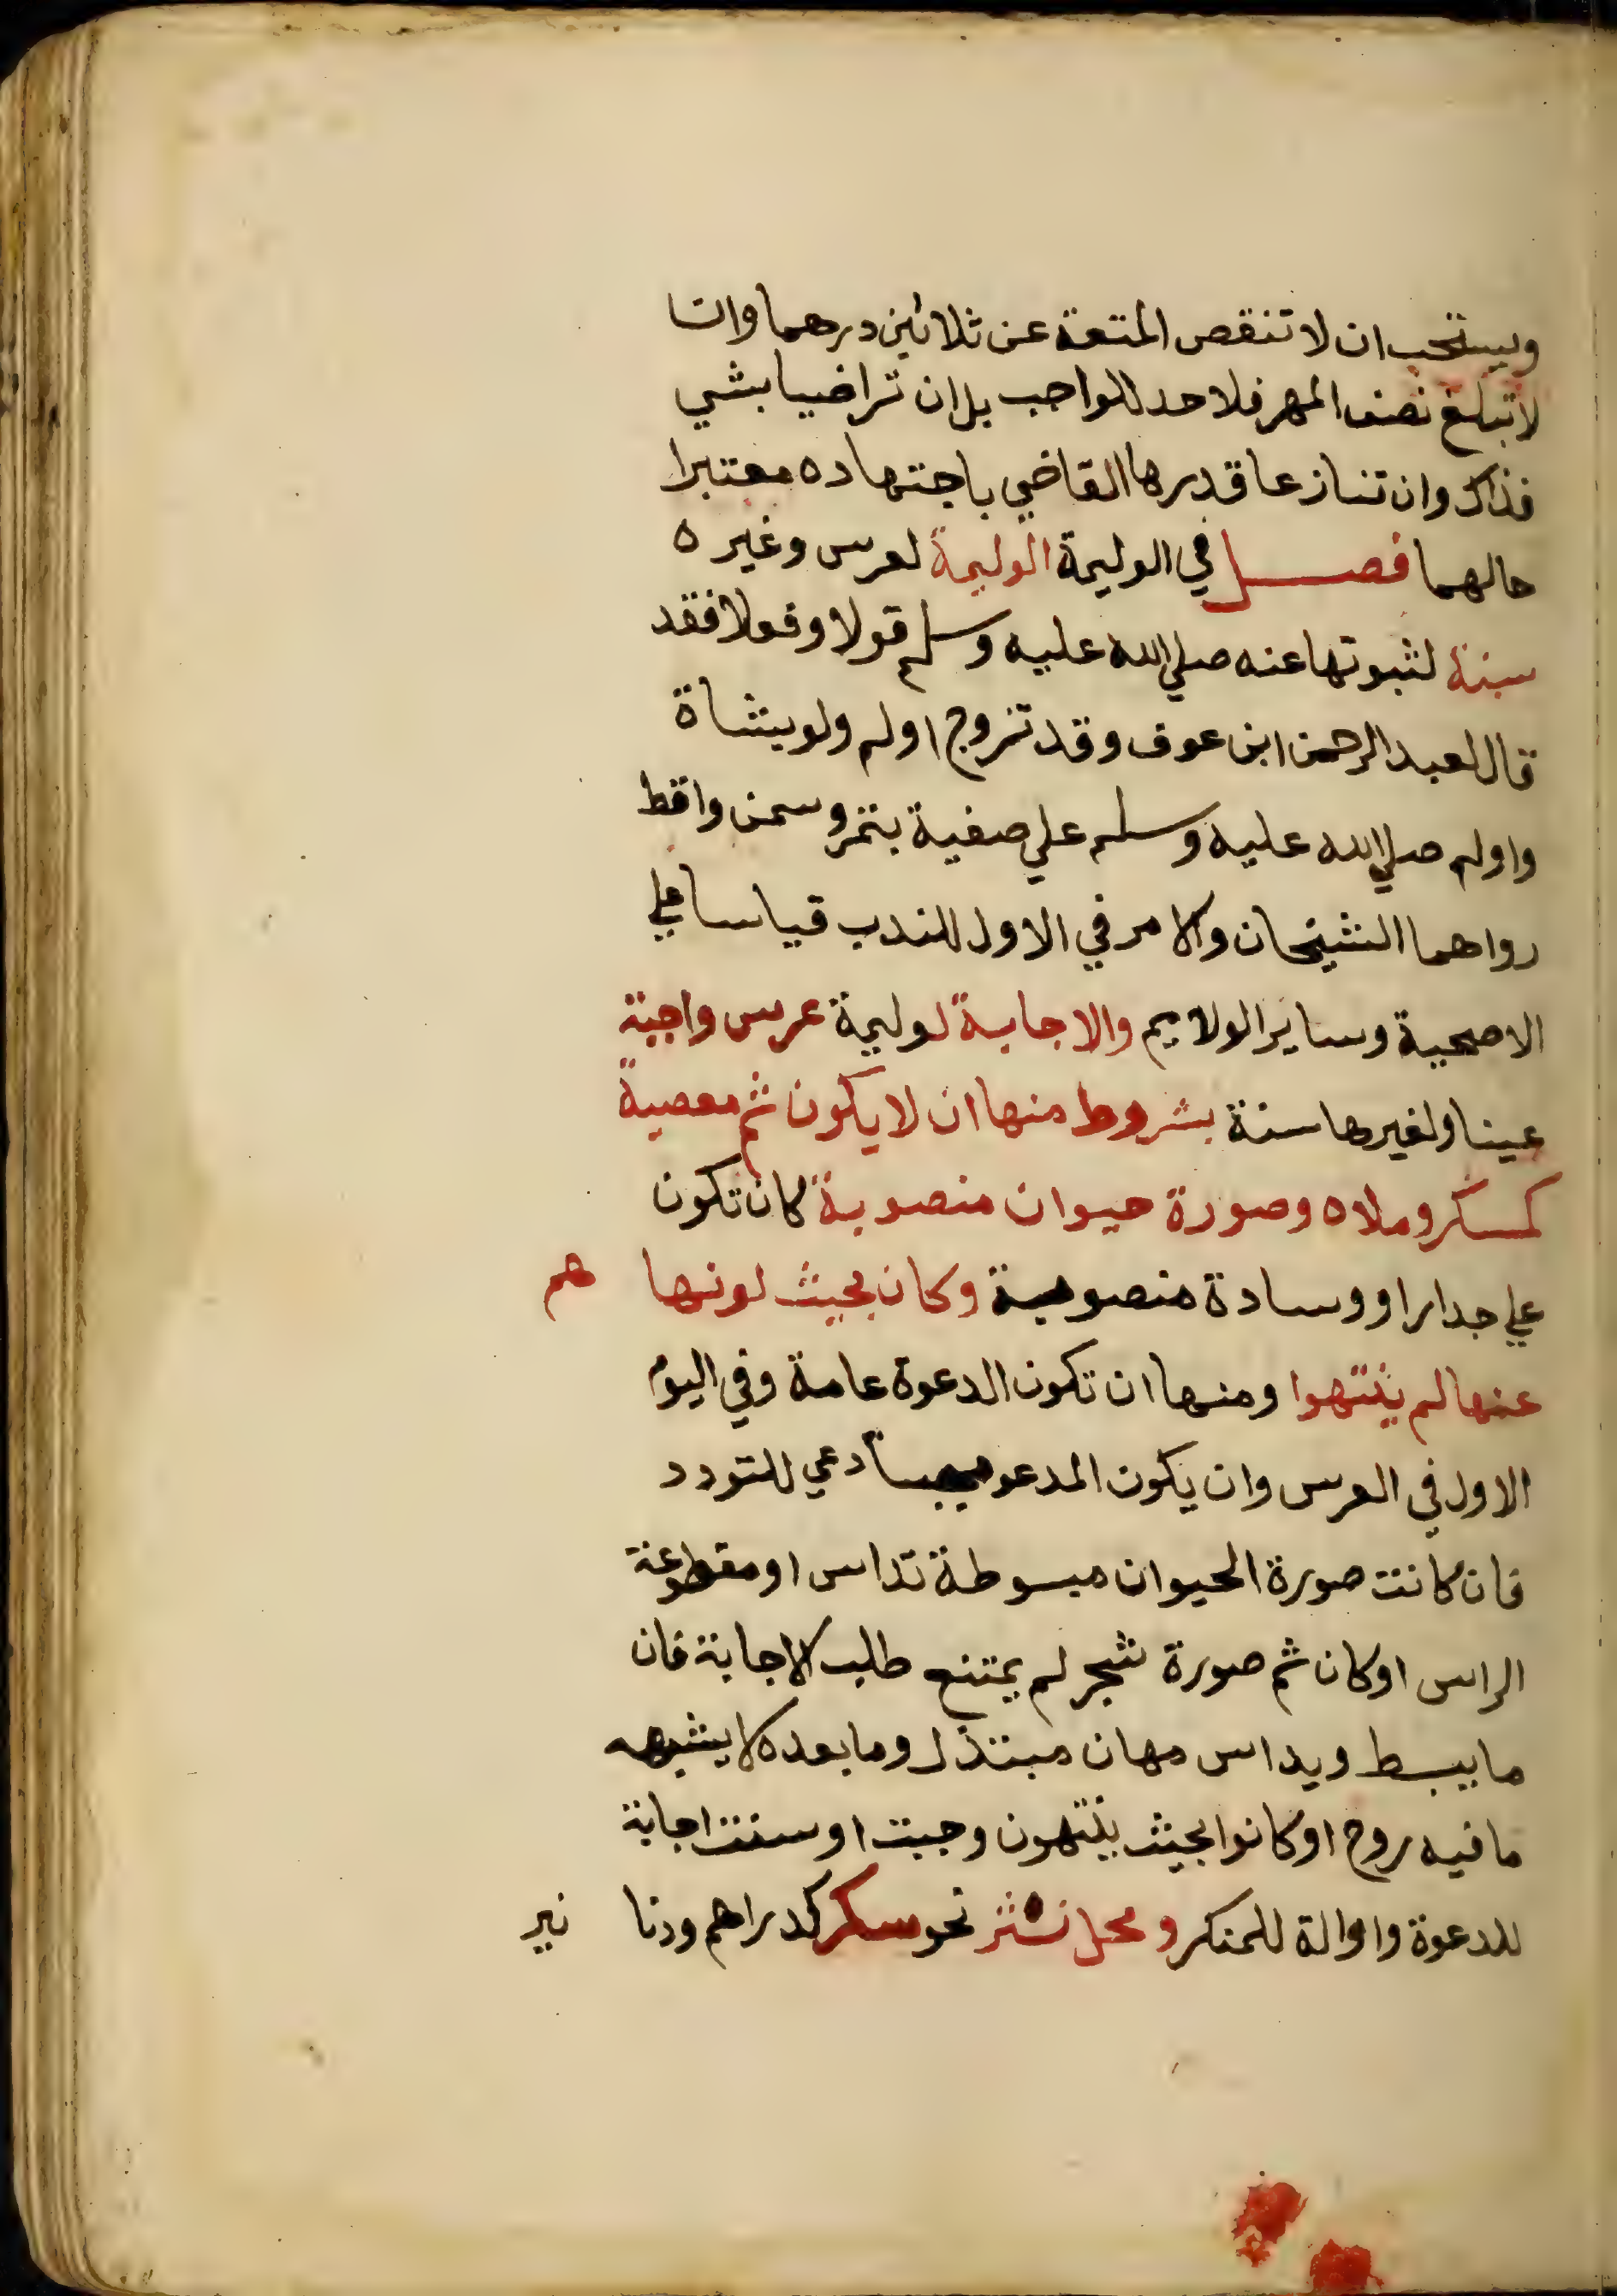 ويستحب ان لا تنقص المتعة عن ثلاثين درهما وان
لا تبلغ نصف المهر فلا حد للواجب بل ان تراضيا بشي
فذاك وان تنازعا قدرها القاضي باجتهاده معتبرا
حالهما فصل في الوليمة الوليمة لعرس وغيره
سنة لثبوتها عنه صلي الله عليه وسلم قولا وفعلا فقد
قال لعبد الرحمن ابن عوف وقد تزوج اولم ولو بشاة
واولم صلي الله عليه وسلم علي صفية بتمر وسمن واقط
رواهما الشيخان والامر في الاول للندب قياسا علي
الاضحية وساير الولايم والاجابة لوليمة عرس واجبة
عينا ولغيرها سنة بشروط منها ان لا يكون ثم معصية
كمسكر وملاه وصورة حيوان منصوبة كان تكون
علي جدار او وسادة منصوبة وكان بحيث لو نها هم
عنها لم ينتهوا ومنها ان تكون الدعوة عامة وفي اليوم
الاول في العرس وان يكون المدعو دعي للتودد
فان كانت صورة الحيوان مبسوطة تداس او مقطوعة
الراس او كان ثم صورة شجر لم يمتنع طلب الاجابة فان
ما يبسط ويداس مهان مبتذل وما بعده لا يشبهه
ما فيه روح او كانوا بحيث ينتهون وجبت او سنت اجابة
للدعوة وازالة للمنكر ومحل نثر نحو سكر كدراهم ودنا نير